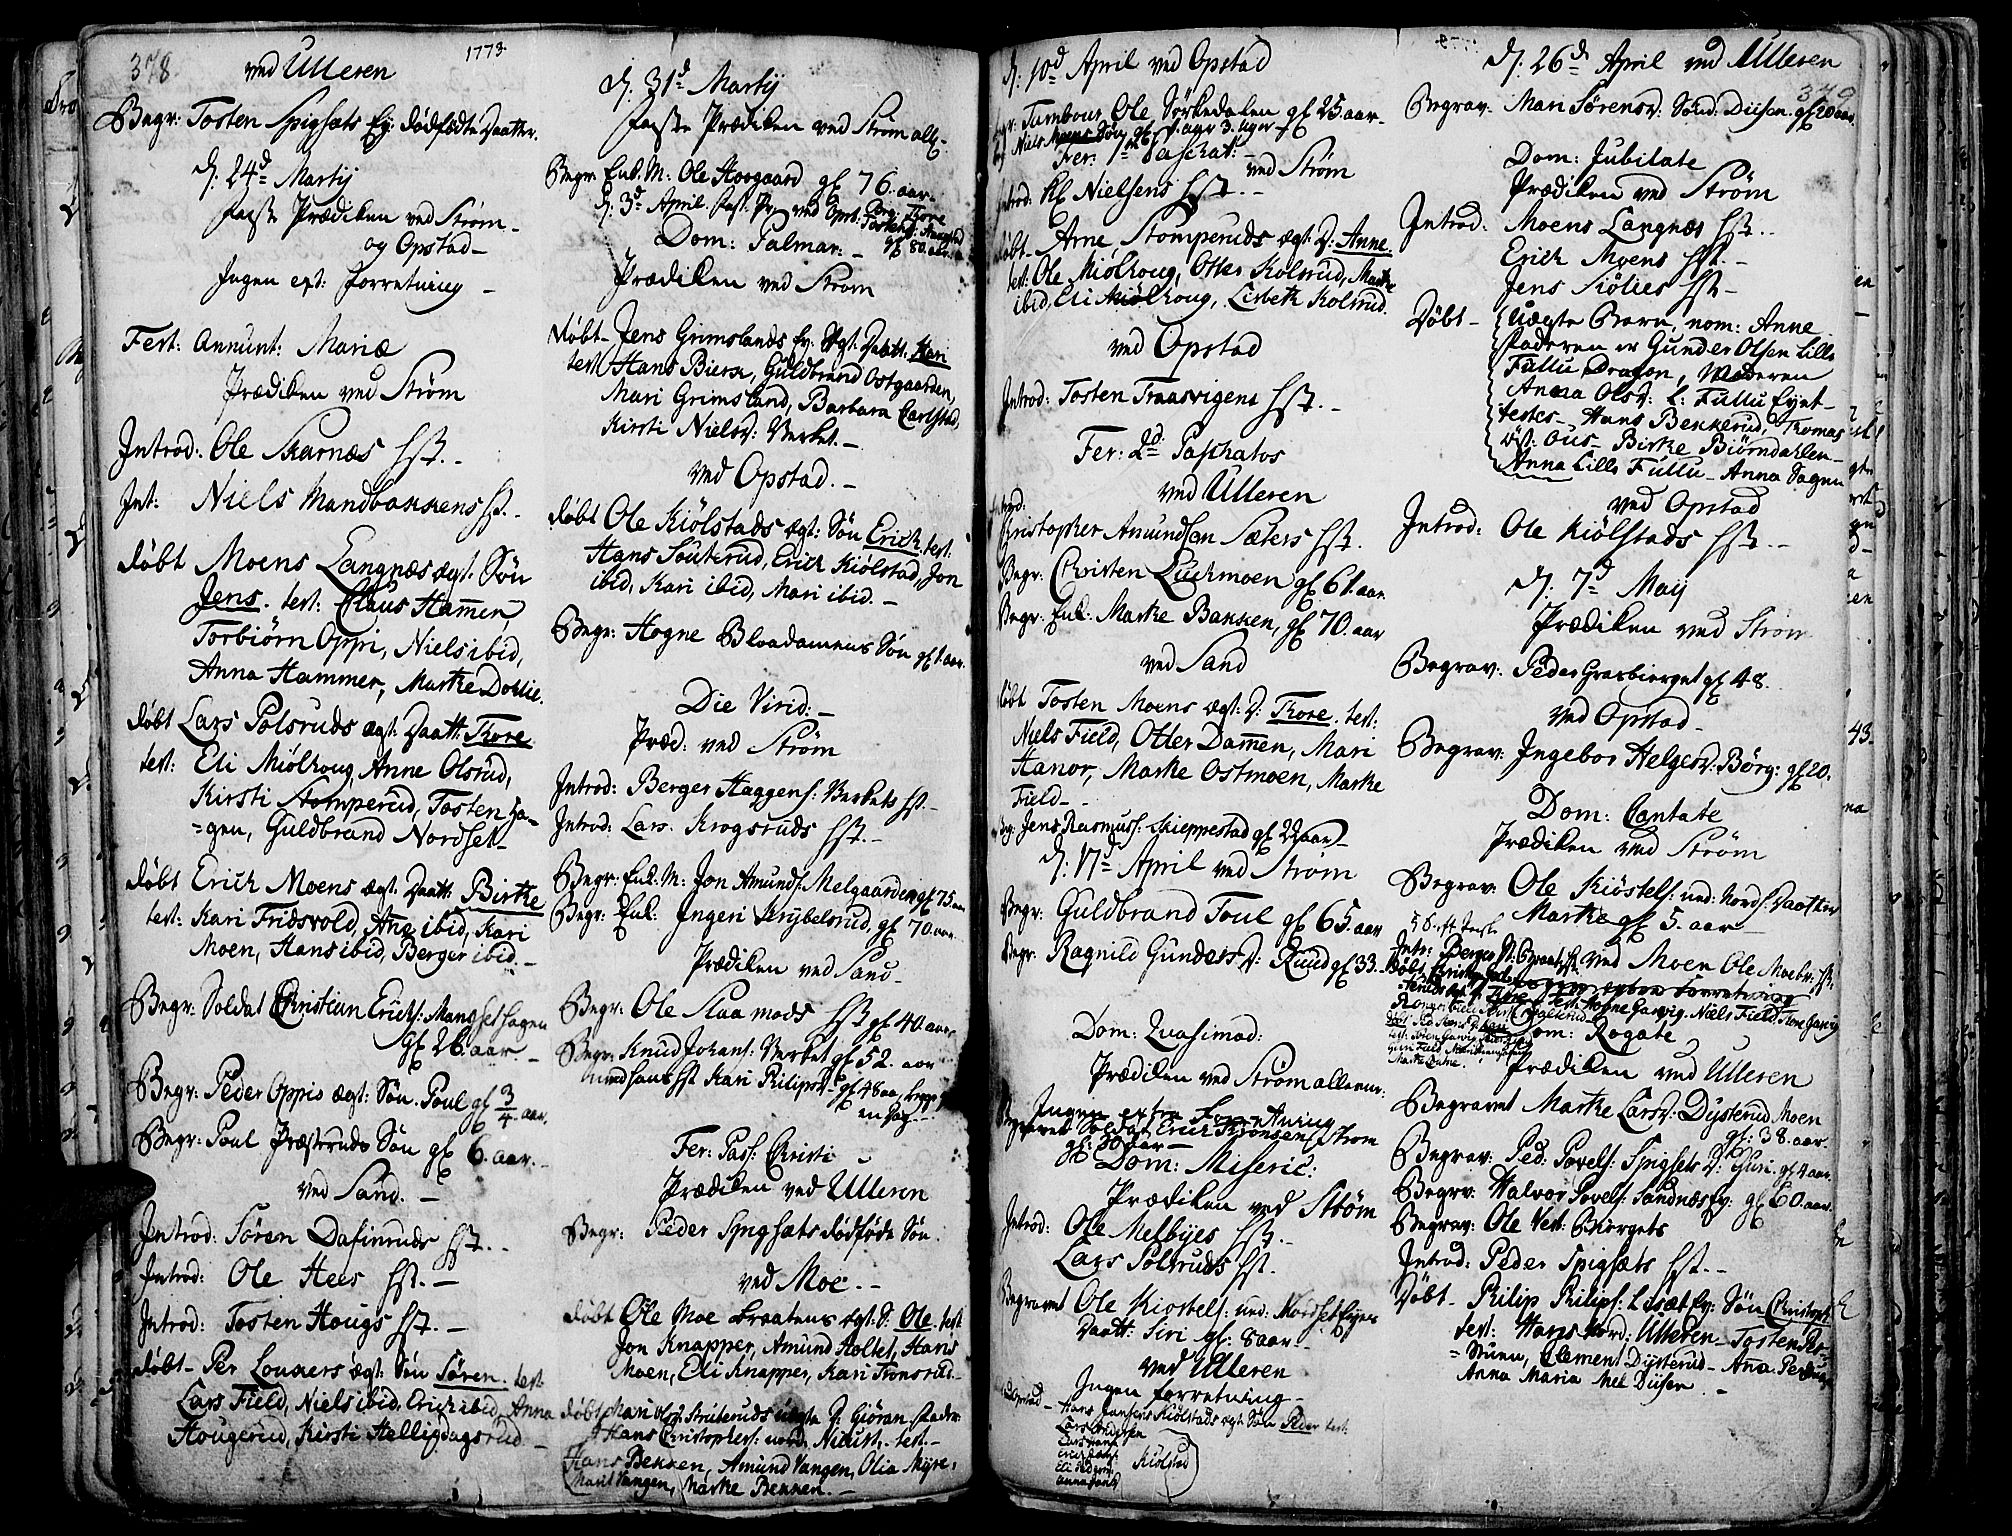 378.
1773.
ved Ulleren
Begr: Tosten Spigsæts Ey: dødfødte Daatter.
d. 24d Martij
faste Prædiken ved Strøm
og Opstad
Ingen ext: forretning
Fest: Annunt: Mariæ
Prædiken ved Strøm
Introd: Ole Skarnæs Hst.
Int: Niels Mandbakkens Hst.
døbt Moens Langnæs ægt: Søn
Jens. test: Claus Hamer,
Torbiørn Oppi, Niels ibid,
Anna Hammer, Marthe Dollie.
døbt Lars Polsruds ægt: Daatt: Thore.
test: Eli Miølhoug, Anne Olsrud,
Kirsti Stomperud, Tosten Ha-
=gen, Guldbrand Nordset
døbt Erich Moens ægt: Daatt: Birthe
test: Kari Fridsvold, Ane ibid, Kari
Moen, Hans ibid, Berger ibid.
Begr: Soldat Christian Erichs: Mangsethagen
gl 26 aar
Begr: Peder Oppis ægt: Søn Poul gl 3/4 aar.
Begr: Poul Præstruds Søn gl 6. aar.
ved Sand.
Introd: Søren Dafinruds Hst.
Introd: Ole Hees Hst.
Introd: Tosten Hougs Hst.
døbt Per Lonners ægt: Søn Søren. test
Lars Field, Niels ibid, Erich ibid, Anna
Hougerud, Kirsti Helligdagsrud
d. 31d Martij
faste Prædiken ved Strøm all
Begr. Enk. M: Ole Hoogaard gl 76. aar.
d. 3d April fast. Pr. ved Opst. Begr. Thore
gl 80 aar
Dom: Palmar.
Prædiken ved Strøm
døbt Jens Grimslands Ey: ægt: Daatt: Kari
test Hans Bierke, Guldbrand Ostgaarden,
Mari Grimsland, Barbara Carlstad,
Kirsti Nielsd: Verket.
ved Opstad.
døbt Ole Kiølstads ægt: Søn Erich. test:
Hans Souterud, Erich Kiølstad, Jon
ibid, Kari ibid, Mari ibid.
Begr: Hogne Bloadamens Søn gl 1 aar.
Die Virid:
Præd: ved Strøm
Introd: Berger Haggens: Verkets Hst.
Introd: Lars Krogsruds Hst.
Begr: Enk: M: Jon Amunds: Melgaarden gl 75 aar
Begr: Enk: Ingeri Krybelsrud, gl 70. aar.
Prædiken ved Sand
Begr: Ole Slaamods Hst gl 40. aar
Begr: Knud Johans: Verket gl 52. aar
med hans Hst Kari Philipsd: gl 48 aar, begge
en Dag
Fer: Pass: Christi
Prædiken ved Ulleren
Begr: Peder Spigsæts dødføde Søn.
ved Moe.
døbt Ole Moe braatens ægt: S. Ole. test
Jon Knapper, Amund Holtet, Hans
Moen, Eli Knapper, Kari Tronsrud
døbt Mari Olsd: Struteruds uægte D: Giøran. fader
Hans Christophers: nord: Nicust. test.
Hans Bekken, Amund Vangen, Olia Myre,
Marit Vangen, Marthe Bekken.
d. 10d April ved Opstad
Begr: Tambour Ole Sørkedalen gl 25. aar.
Niels Moens Søn gl 1. aar 3. uger
Fer: 1ma Paschat:
ved Strøm
Introd: Hl Nielsens Hst.
døbt Arne Stomperuds ægt: D: Anne.
test: Ole Miølhoug, Otter Kolsrud, Marthe
ibid, Eli Miølhoug, Lisbeth Kolsrud.
ved Opstad
Introd: Tosten Traasvigens Hst.
Fer: 2d Paschatos
ved Ulleren
Introd:
Christopher Amundsen Sæters Hst.
Begr: Christen Luchmoen gl 61. aar.
Begr: Enk: Marthe Bakken, gl 70. aar
ved Sand
døbt Tosten Moens ægt: D: Thore. test:
Niels Field, Otter Dammen, Mari
Hanor, Marthe Ostmoen, Marthe
Field
Begr: Jens Rasmuss: Skieppestad gl 22 aar
d. 17d April ved Strøm
Begr: Guldbrand Foul gl 65. aar
Begr: Ragnild Gundersd: Ruud gl 33.
Dom: Quasimod:
Prædiken ved Strøm allene:
Ingen extra forretning
Begravet Soldat Erich Simonsen Strøm
gl: 30 aar
Dom: Miseric:
Prædiken ved Strøm
Introd: Ole Melbyes Hst.
Lars Polsruds Hst.
Begravet Ole Kiostels: und: Nordset Eyes
Daatt: Siri gl: 8 aar
ved Ulleren
Ingen forretning
Hans Jensens Kiølstads ægt: Søn Peder test:
Kiølstad
379
d. 26d April ved Ulleren
Begrav: Mari Sørensd: Sønd: Diisen. gl 20 aar.
Dom: Jubilate
Prædiken ved Strøm
Introd: Moens Langnæs Hst.
Erich Moens Hst.
Jens Kiølies Hst
Døbt Uægte Barn, nom: Anne
Faderen er Gunder Olsen Lille
Fullu Dragon, Moderen
Anna Olsd: L: Fullu Eyet
testes Hans Bekkerud, Thomas
øst: Ous Birthe Biørndahlen
Anna Lille Fullu Anna Sagen
ved Opstad
Introd: Ole Kiølstads Hst.
d. 7d Maij
Prædiken ved Strøm
Begrav: Peder Graxbierget gl 48.
ved Opstad
Begrav: Ingebor Helgesd: Børg: gl 20.
Dom: Cantate
Prædiken ved Strøm
Begrav: Ole Kiøstels: und: Nords: Daatter
Marthe gl 5. aar
ved Moen Ole Moebr: Hst.
Dom: Rogate
Prædiken ved Ulleren
Begravet Marthe Larsd: Dysterud Moen
gl: 38. aar.
Begrav: Ped: Povels: Spigsets D: Guri. gl 4 aar.
Begrv: Halvor Povels: Sandnæs Ey: gl 60. aar.
Begrav: Ole Vest: Bhergets
Introd: Peder Spigsæts Hst.
Døbt Philip Philips: Lisæt Ey: Søn Christoph
test: Hans Nord: Ulleren Tosten Pers-
=stuen, Clement Dysterud Ana
Anna Maria Mel Diisen.